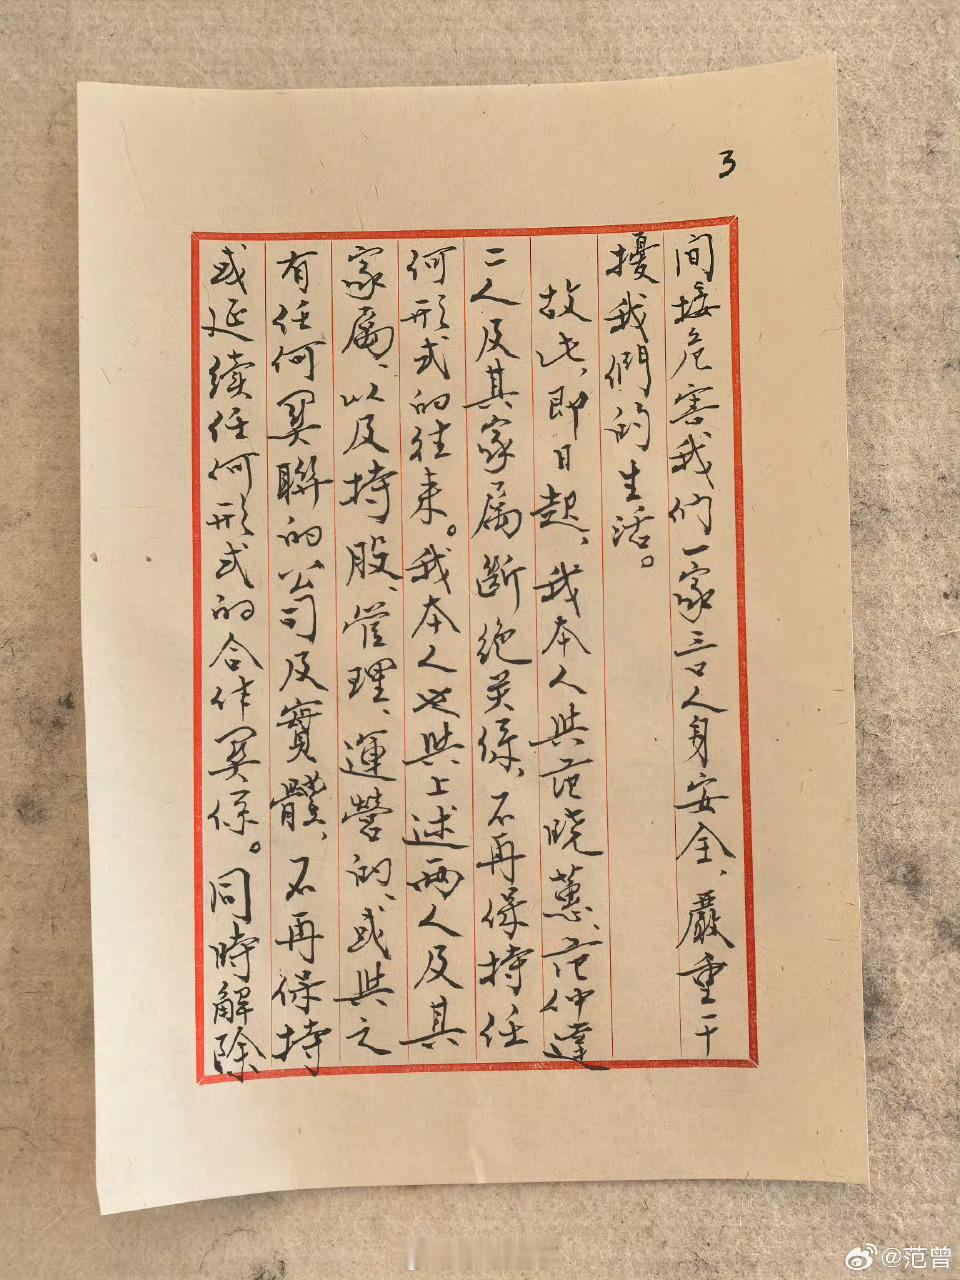 3
間接危害我们一家三口人身安全、嚴重干
擾我們的生活。
故此、即日起、我本人與范晓蕙、范仲達
二人及其家属斷绝关係、不再保持任
何形式的往来。我本人也與上述两人及其
家属、以及持股、管理、運營的、或與之
有任何関聯的公司及實體、不再保持
或延續任何形式的合作関係。同時解除
@范曾